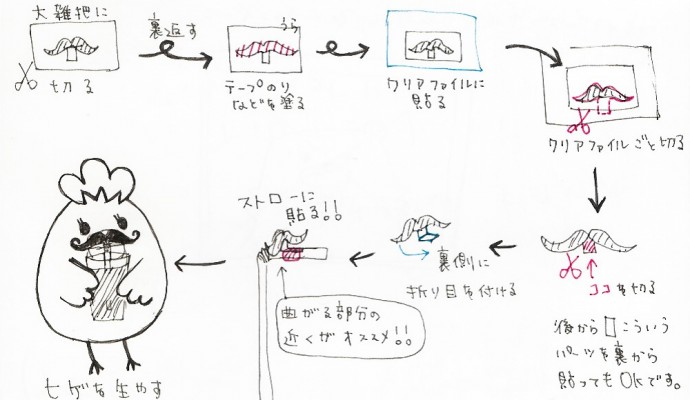 大雑把に
切る
裏返す
うら
テープのり
などを塗る
クリアファイルに
貼る
クリアファイルごと切る
ココを切る
後から こういう
パーツを裏から
貼ってもOKです。
裏側に
折り目を付ける
ストローに
貼る!!
曲がる部分の
近くがオススメ!!
ヒゲを生やす